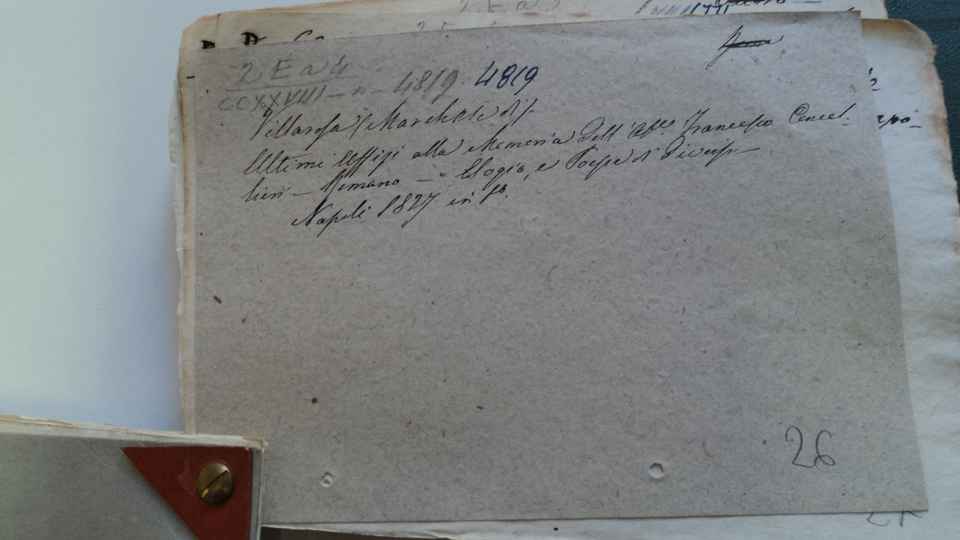 2 E a 4
CCXXVIII – n – 4819 4819
Villarosa (Marchese di)
Ultimi Uffizi alla Memoria dell' Ab.te Francesco Cancel-
lieri – Romano – Elogio, e Poesie di diversi –
Napoli 1827 in f.o
26